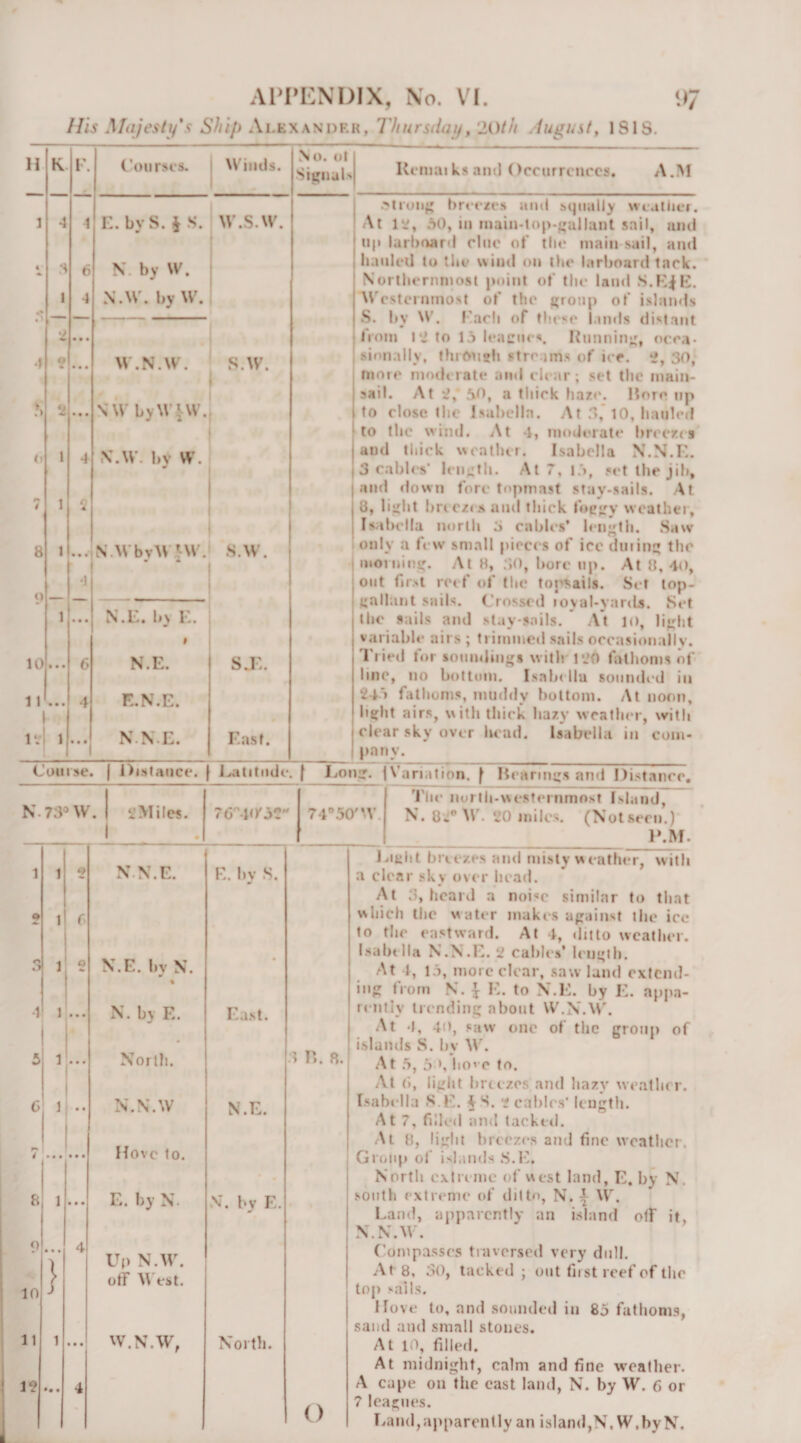 APPENDIX, No. VI. 97
His Majesty's Ship ALEXANDER, Thursday, 20th August, 1818.
H K. F. Courses. Winds. No. of Signals Remarks and Occurrences. A.M
1 4 4 E. by S. ½ S. W.S.W.
2 3 6 N. by W.
1 4 N.W. by W.
3
2 ...
4 2 ... W.N.W. S.W.
5 2 ... NW by W ½ W.
6 1 4 N.W. by W.
7 1 2
8 1 ... N.W by W ½ W. S.W.
4
9
1 ... N.E. by E.
10 ... 6 N.E. S.E.
11 ... 4 E.N.E.
12 1 ... N.N.E. East.
Strong breezes and squally weather.
At 12, 50, in main-top-gallant sail, and
up larboard clue of the main sail, and
hauled to the wind on the larboard tack.
Northernmost point of the land S.E¾E.
Westernmost of the group of islands
S. by W. Each of these lands distant
from 12 to 15 leagues. Running, occa-
sionally, through streams of ice. 2, 30,
more moderate and clear; set the main-
sail. At 2, 50, a thick haze. Bore up
to close the Isabella. At 3, 10, hauled
to the wind. At 4, moderate breezes
and thick weather. Isabella N.N.E.
3 cables' length. At 7, 15, set the jib,
and down fore topmast stay-sails. At
8, light breezes and thick foggy weather,
Isabella north 3 cables' length. Saw
only a few small pieces of ice during the
morning. At 8, 30, bore up. At 8, 40,
out first reef of the topsails. Set top-
gallant sails. Crossed royal-yards. Set
the sails and stay-sails. At 10, light
variable airs; trimmed sails occasionally.
Tried for soundings with 120 fathoms of
line, no bottom. Isabella sounded in
245 fathoms, muddy bottom. At noon,
light airs, with thick hazy weather, with
clear sky over head. Isabella in com-
pany.
Course. Distance. Latitude. Long. Variation. Bearings and Distance.
N. 73° W. 2 Miles. 76°40'52" 74°50'W. The north-westernmost Island,
N. 82° W. 20 miles. (Not seen.)
P.M.
1 1 2 N.N.E. E. by S.
2 1 6
3 1 2 N.E. by N.
4 1 ... N. by E. East.
5 1 ... North. 3 B. 8.
6 1 .. N.N.W N.E.
7 ... ... Hove to.
8 1 ... E. by N. N. by E.
9 ... 4
10 } Up N.W.
off West.
11 1 ... W.N.W, North.
12 ... 4
O
Light breezes and misty weather, with
a clear sky over head.
At 3, heard a noise similar to that
which the water makes against the ice
to the eastward. At 4, ditto weather.
Isabella N.N.E. 2 cables' length.
At 4, 15, more clear, saw land extend-
ing from N. ½ E. to N.E. by E. appa-
rently trending about W.N.W.
At 4, 40, saw one of the group of
islands S. by W.
At 5, 50, hove to.
At 6, light breezes and hazy weather.
Isabella S.E. ½ S. 2 cables' length.
At 7, filled and tacked.
At 8, light breezes and fine weather.
Group of islands S.E.
North extreme of west land, E. by N.
south extreme of ditto, N. ½ W.
Land, apparently an island off it,
N.N.W.
Compasses traversed very dull.
At 8, 30, tacked; out first reef of the
top sails.
Hove to, and sounded in 85 fathoms,
sand and small stones.
At 10, filled.
At midnight, calm and fine weather.
A cape on the east land, N. by W. 6 or
7 leagues.
Land, apparently an island, N.W. by N.